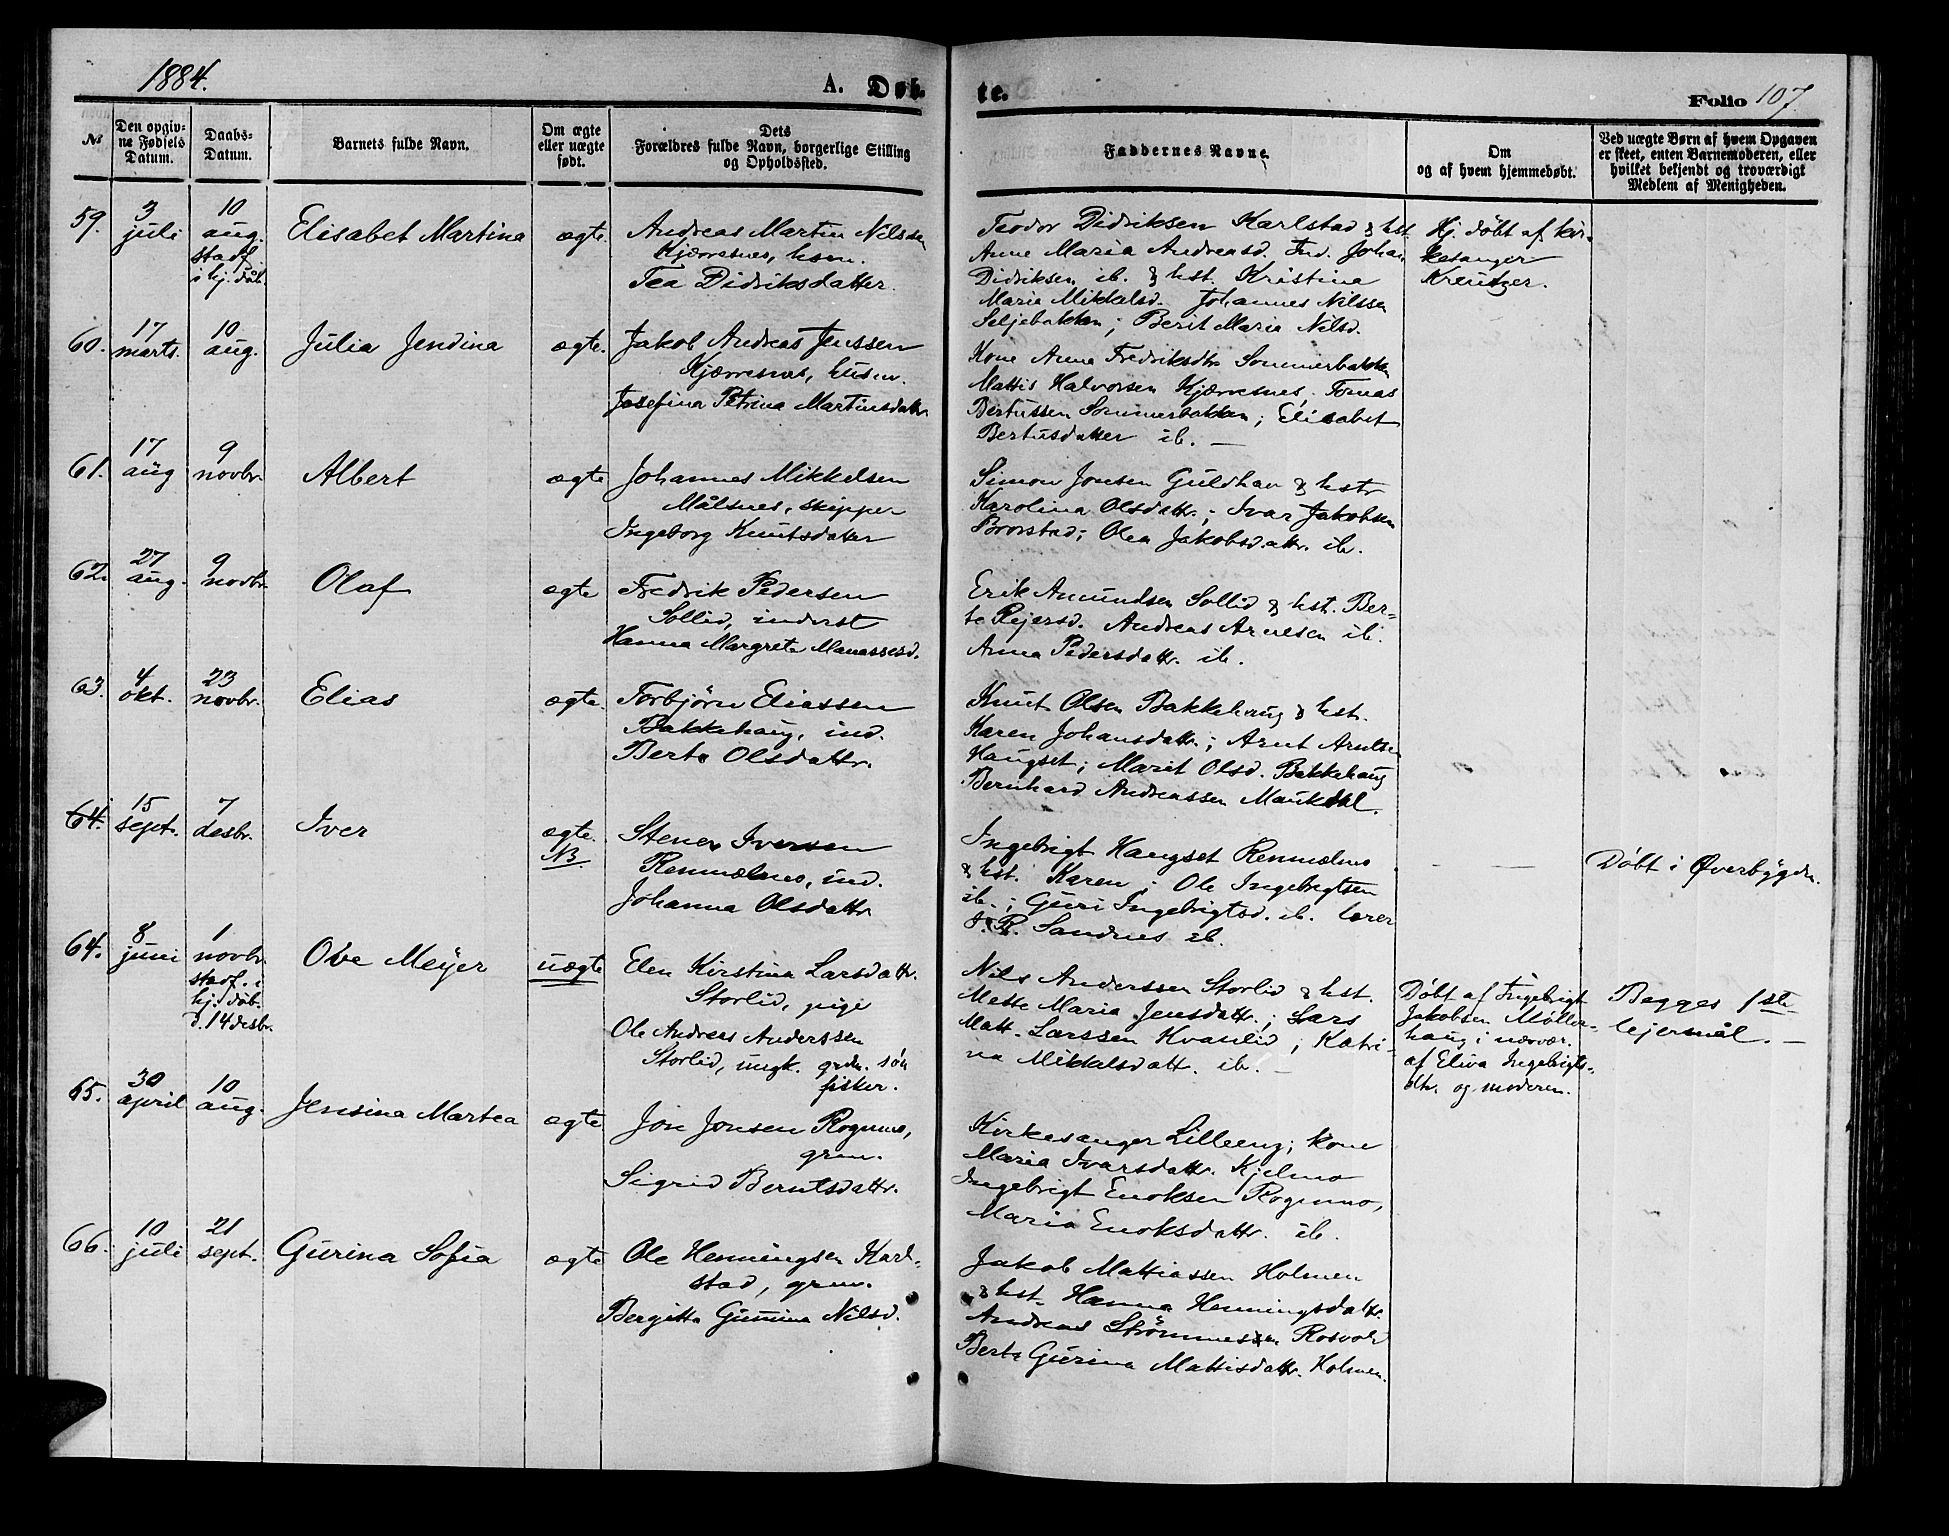 1884.
A. Døb-
te.
Folio 107
№
Den opgiv-
ne Fødsels
Datum.
Daabs-
Datum.
Barnets fulde Navn.
Om ægte
eller uægte
født.
Dets
Forældres fulde Navn, borgerlige Stilling
og Opholdssted.
Faddernes Navne.
Om
og af hvem hjemmedøbt.
Ved uægte Børn af hvem Opgaven
er skeet, enten Barnemoderen, eller
hvilket bekjendt og troværdigt
Medlem af Menigheden.
59.
3
juli
10
aug.
stadf.
i hj. dåb.
Elisabet Martina
ægte.
Andreas Martin Nilssen
Kjærresnes, husm.
Tea Didriksdatter.
Teodor Didriksen Karlstad & hst.
Anne Maria Andreasd. Ind. Johan
Didriksen ib. & hst. Kristina
Maria Mikkalsd. Johannes Nilssen
Seljebakken; Berit Maria Nilsd.
Hj. döbt af kir-
kesanger
Kreutzer.
60.
17
marts.
10
aug.
Julia Jendina
ægte.
Jakob Andreas Jenssen
Kjærresnes, husm.
Josefina Petrina Martinsdattr
Kone Anna Fredriksdtr Sommerbakken
Mattis Halvorsen Kjærresnes. Tomas
Bertussen Sommerbakken; Elisabet
Bertusdatter ib. —
61.
17
aug
9
novbr.
Albert
ægte
Johannes Mikkelsen
Målsnes, skipper
Ingeborg Knutsdatter
Simon Jonsen Guldhav & hstr
Karolina Olsdattr.; Ivar Jakobsen
Brorstad; Olea Jakobsdattr. ib.
62.
27
aug.
9
novbr.
Olaf
ægte
Fredrik Pedersen
Sollid, inderst
Hanna Margrete Manassesd.
Erik Amundsen Sollid & hst. Ber-
te Pejersd. Andreas Arnesen ib.
Anna Pedersdattr. ib.
63.
4
okt.
23
novbr.
Elias
ægte.
Torbjörn Eliassen
Bakkehaug, ind.
Berte Olsdattr.
Knut Olsen Bakkehaug & hst.
Karen Johansdattr.; Arnt Arntsen
Haugset; Marit Olsd. Bakkehaug
Bernhard Andreassen Maukdal.
64.
15
septr.
7
desbr.
Iver
ægte.
NB
Stener Iversen
Renmælmo, ind.
Johanna Olsdattr
Ingebrigt Haugset Renmælmo
& hst. Karen; Ole Ingebrigtsen
ib.; Guri Ingebrigtsd. ib. lærer
J. R. Sandnes ib.
— —
Döbt i Øverbygden.
64.
8
juni
1
novbr.
stadf. i
hj. dåb.
d. 14 desbr.
Ove Meyer
uægte
Elen Kirstina Larsdattr.
Storlid, pige
Ole Andreas Anderssen
Storlid, ungk. grdm. sön
fisker.
Nils Anderssen Storlid & hst.
Mette Maria Jensdattr.; Lars
Matt. Larssen Kvanlid; Katri-
na Mikkelsdatt. ib. —
Döbt af Ingebrigt
Jakobsen Möller-
haug i nærvær.
af Elisa Ingebrigts-
dtr. og moderen.
Begges 1ste
lejermål. —
65.
30
april
10
aug.
Jensina Martea
ægte
Jon Jonsen Rognmo,
grm.
Sigrid Berntsdattr.
Kirkesanger Lilleeng; kone
Maria Ivarsdattr. Kjelmo
Ingebrigt Enoksen Rognmo,
Maria Enoksdattr. ib.
66.
10
juli
21
sept.
Gurina Sofia
ægte
Ole Henningsen Karl-
stad, grm.
Bergitta Gunina Nilsd.
Jakob Mattiassen Holmen
& hst. Hanna Henningsdattr.
Andreas Strömmesen Rosvold
Berte Gurina Mattisdattr. Holmen.